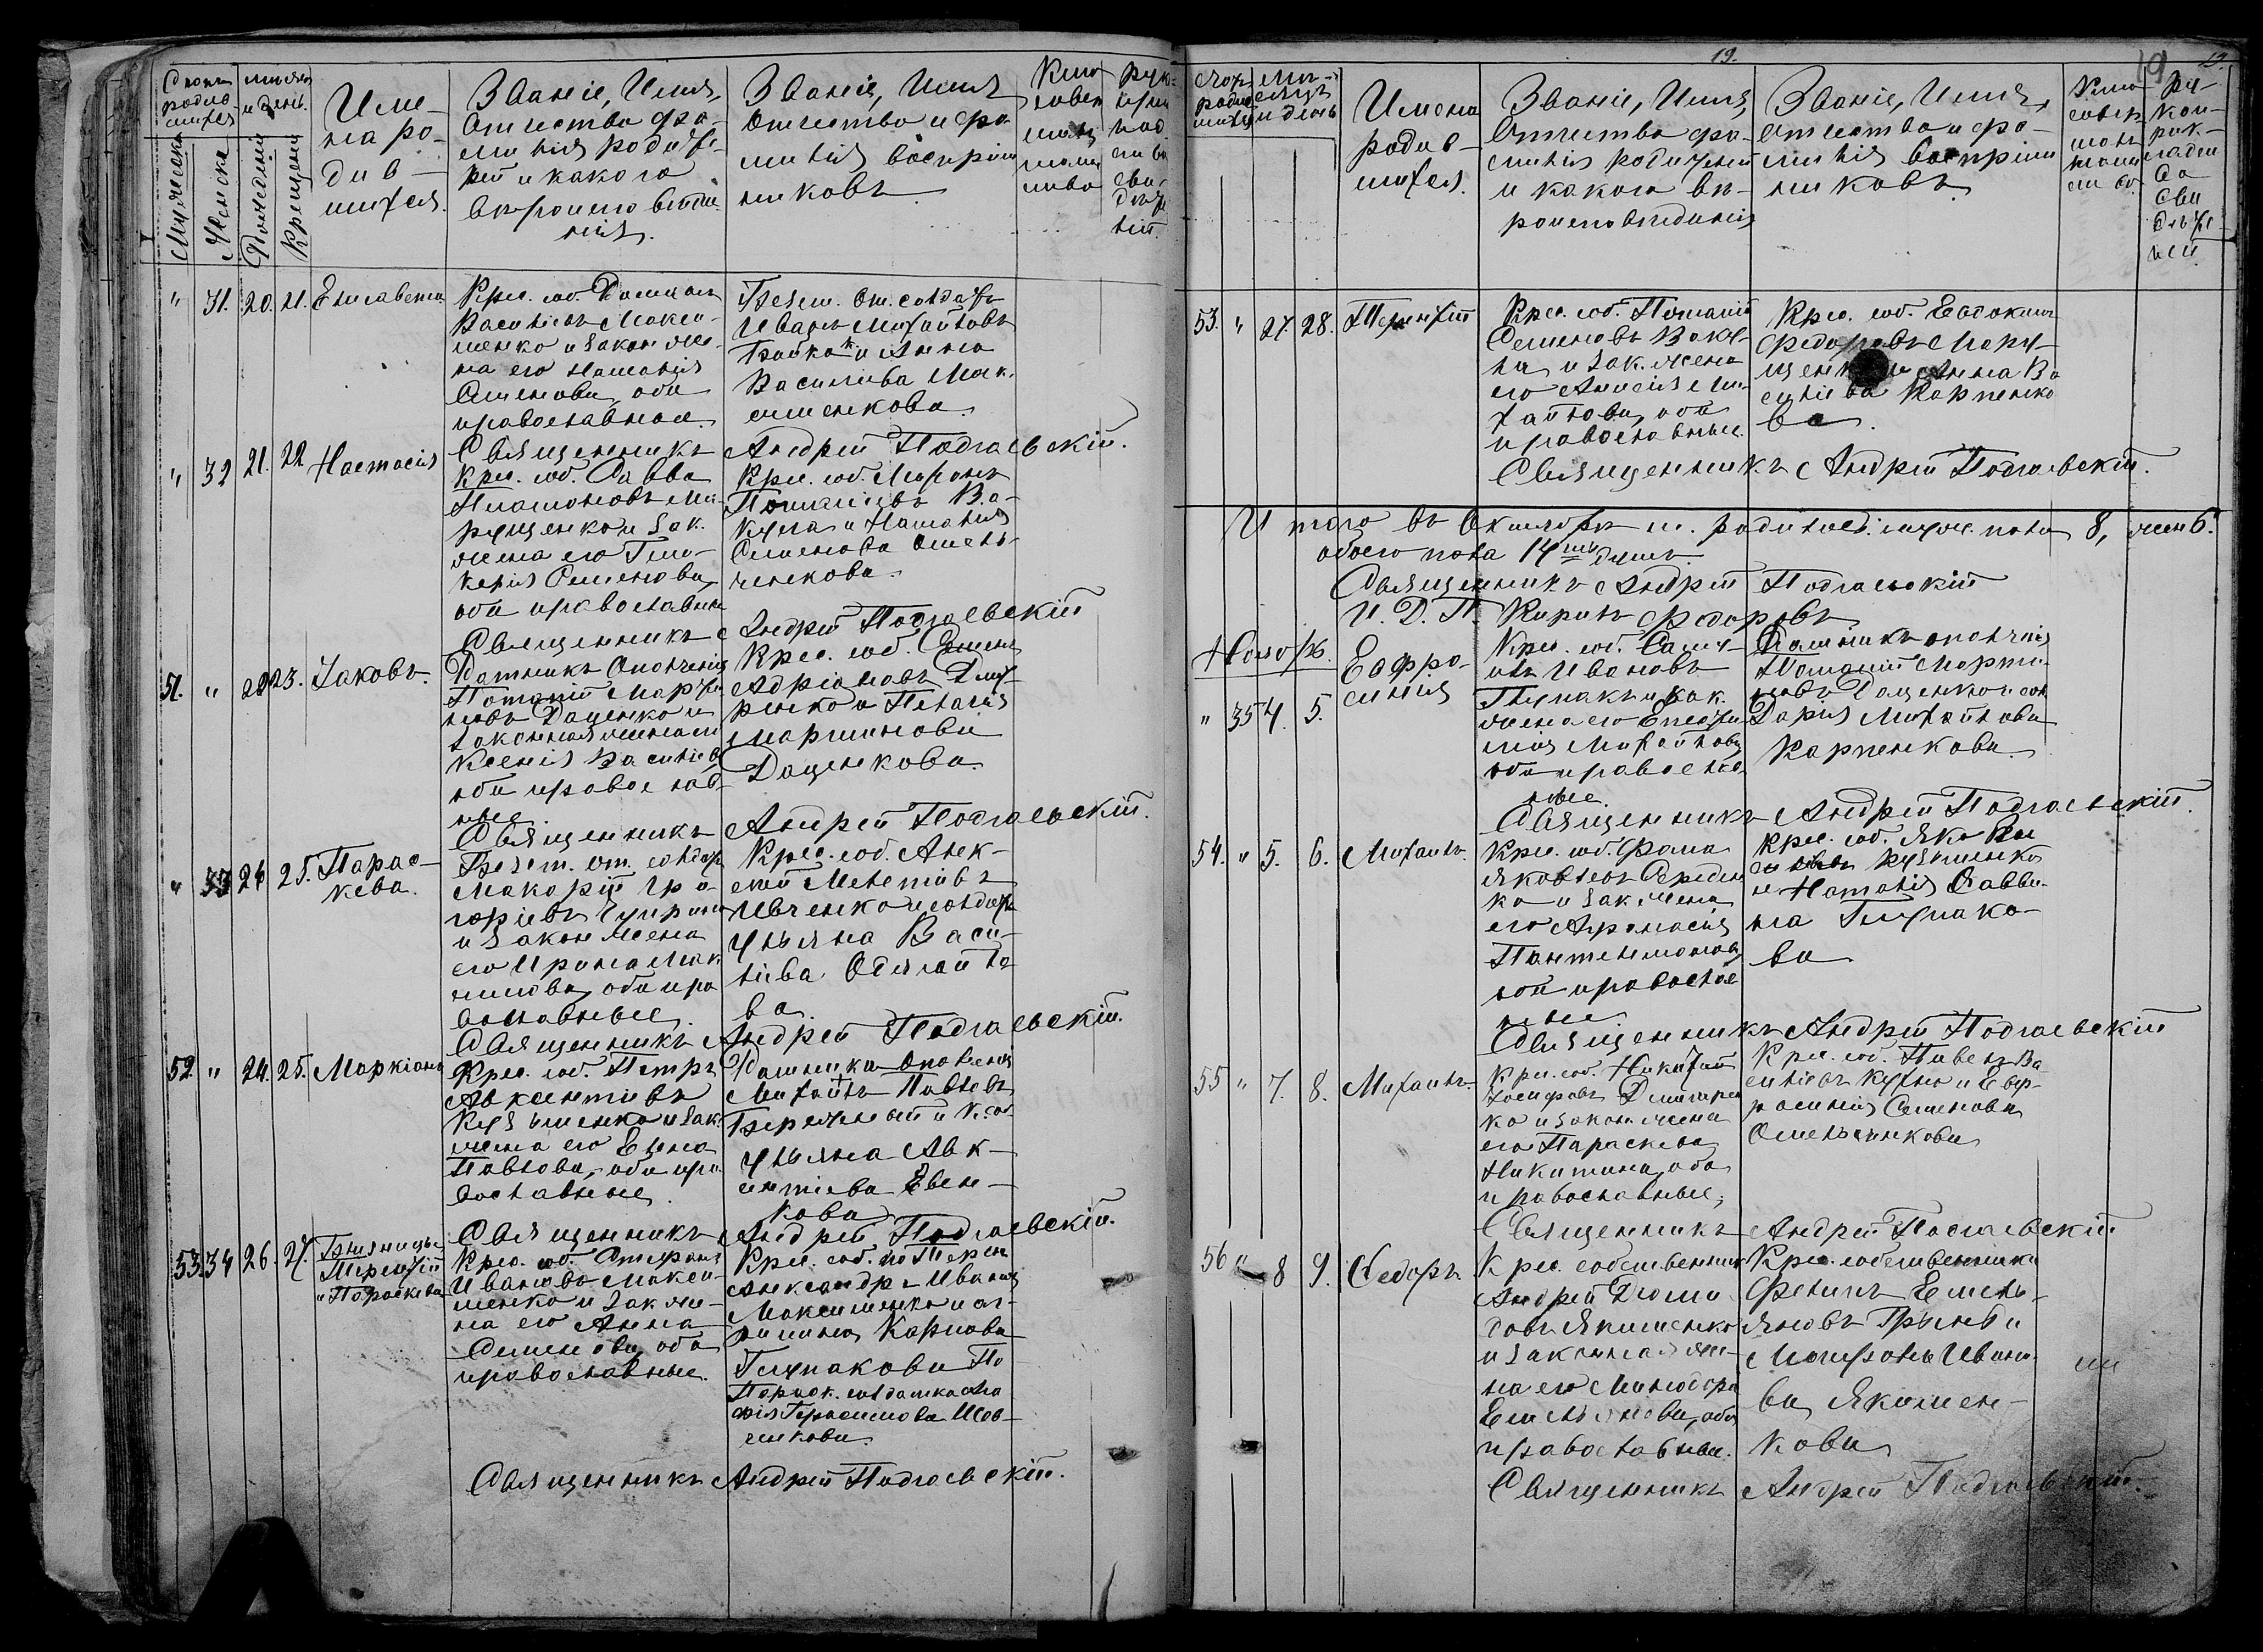 Счотъ
родив-
шихся
мѣсяц
и день.
Мужеска
Женска
Рожденія
Крещенія
Име-
на ро-
див-
шихся.
Званіе, Имя,
Отчество фа-
милія родите-
лей и какого
вѣроисповѣда
нія.
Званіе, Имя
Отчество и фа
милія воспріем
никовъ.
Кто
совер
шалъ
таин
ство
" 31. 20. 21. Елисавета
Крес. соб. Даміанъ
Васильевъ Макси-
менко и закон. же-
на его Наталія
Семенова, оба
православные.
Безт. от. солдатъ
Иванъ Михайловъ
и Анна
Василіева Мак-
сименкова.
Священникъ Андрей Подгаевскій.
" 32 21. 22 Настасія
Крес. соб. Савва
Платоновъ Ма-
рущенко и зак.
жена его Гли-
керія Семенова,
оба православные
Крес. соб. Миронъ
Потапіевъ Ва-
кула и Наталія
Семенова Омель-
ченкова.
Священникъ Андрей Подгаевскій
51. " 22 23. Іаковъ.
Ратникъ Ополченія
Потапій Марти-
новъ Даценко и
законная жена его
Ксенія Василіева
оба православ-
ные.
Крес. соб. Семенъ
Адріановъ
и Пелагія
Мартинова
Даценкова.
Священникъ Андрей Подгаевскій.
" 33 24 25. Парас-
кева.
Безт. от. солдат
Макарій Гри-
горіевъ Чуприна
и закон. жена
его Ирина Мак
симова, оба пра
вославные.
Крес. соб. Алек-
сей Мелетіевъ
Ивченко и солдат
Ульяна Васи-
ліева
ва.
Священникъ Андрей Подгаевскій.
52. " 24. 25. Маркіанъ
Крес. соб. Петръ
Авксентіевъ
Кузьменко и зак.
жена его Елена
Павлова, оба пра
вославные.
Ратника ополченія
Михаилъ Павловъ
Бережный и
Ульяна Авк-
сентіева
кова
Священникъ Андрей Подгаевскій.
53. 34 26. 27. Близнецы
Терентій
и Параскева
Крес. соб. Стефанъ
Ивановъ Макси-
менко и зак. же-
на его Анна
Семенова, оба
православные.
Крес. соб. по Терен.
Александръ Ивановъ
Максименко и
Карпова
Глупакова По
Параск. солдатка
Герасимова Шев-
ченкова.
Священникъ Андрей Подгаевскій.
19.
19
19.
Имена
родив-
шихся.
Званіе, Имя,
Отчество фа-
милія родителей
и какого вѣ-
роисповѣданія
Званіе, Имя,
Отчество и фа-
милія воспріем
никовъ.
53. " 27. 28. Терентій
Крес. соб. Потапій
Семеновъ Ваку-
ла и зак. жена
его Анисія Ми-
хайлова, оба
православные.
Крес. соб. Евдокимъ
Федоровъ Мару-
щенко и Анна Ва
силіева Карпенко
ва.
Священникъ Андрей Подгаевскій.
И того въ Октябрѣ м. родилось муж. пола 8, жен 6.
обоего пола 14ть душъ.
Священникъ Андрей Подгаевскій
И. Д. П. Кирилъ Федоровъ
Ноябрь.
" 35 4. 5. Евфро-
синія
Крес. соб. Саму-
илъ Ивановъ
Глупакъ и зак.
жена его
Михайлова
оба православ-
ные.
Ратникъ ополченія
Потапій Марти-
новъ Даценко и
Дарія Михайлова
Карпенкова.
Священникъ Андрей Подгаевскій.
54. " 5. 6. Михаилъ.
Крес. соб. Фома
Яковлевъ Середен
ко и зак. жена
его Афанасія
Пантелимонова
оба православ
ные
Крес. соб.
Кузьменко
и Наталія Савви-
на Глупако-
ва
Священникъ Андрей Подгаевскій
55 " 7. 8. Михаилъ.
Крес. соб. Никифоръ
Іосифовъ
ко и закон. жена
его Параскева
Никитина, оба
православные,
Крес. соб. Павелъ Ва-
силіевъ и Евф-
росинія Семенова
Омельченкова
Священникъ Андрей Подгаевскій
56 " 8 9. Федоръ.
Крес. собственник
Андрей
Якименко
и законная же-
на его Минодора
Емельянова, оба
православные.
Крес. собственника
Филипъ Емель-
яновъ
Ивано-
ва Якимен-
кова
Священникъ Андрей Подгаевскій.